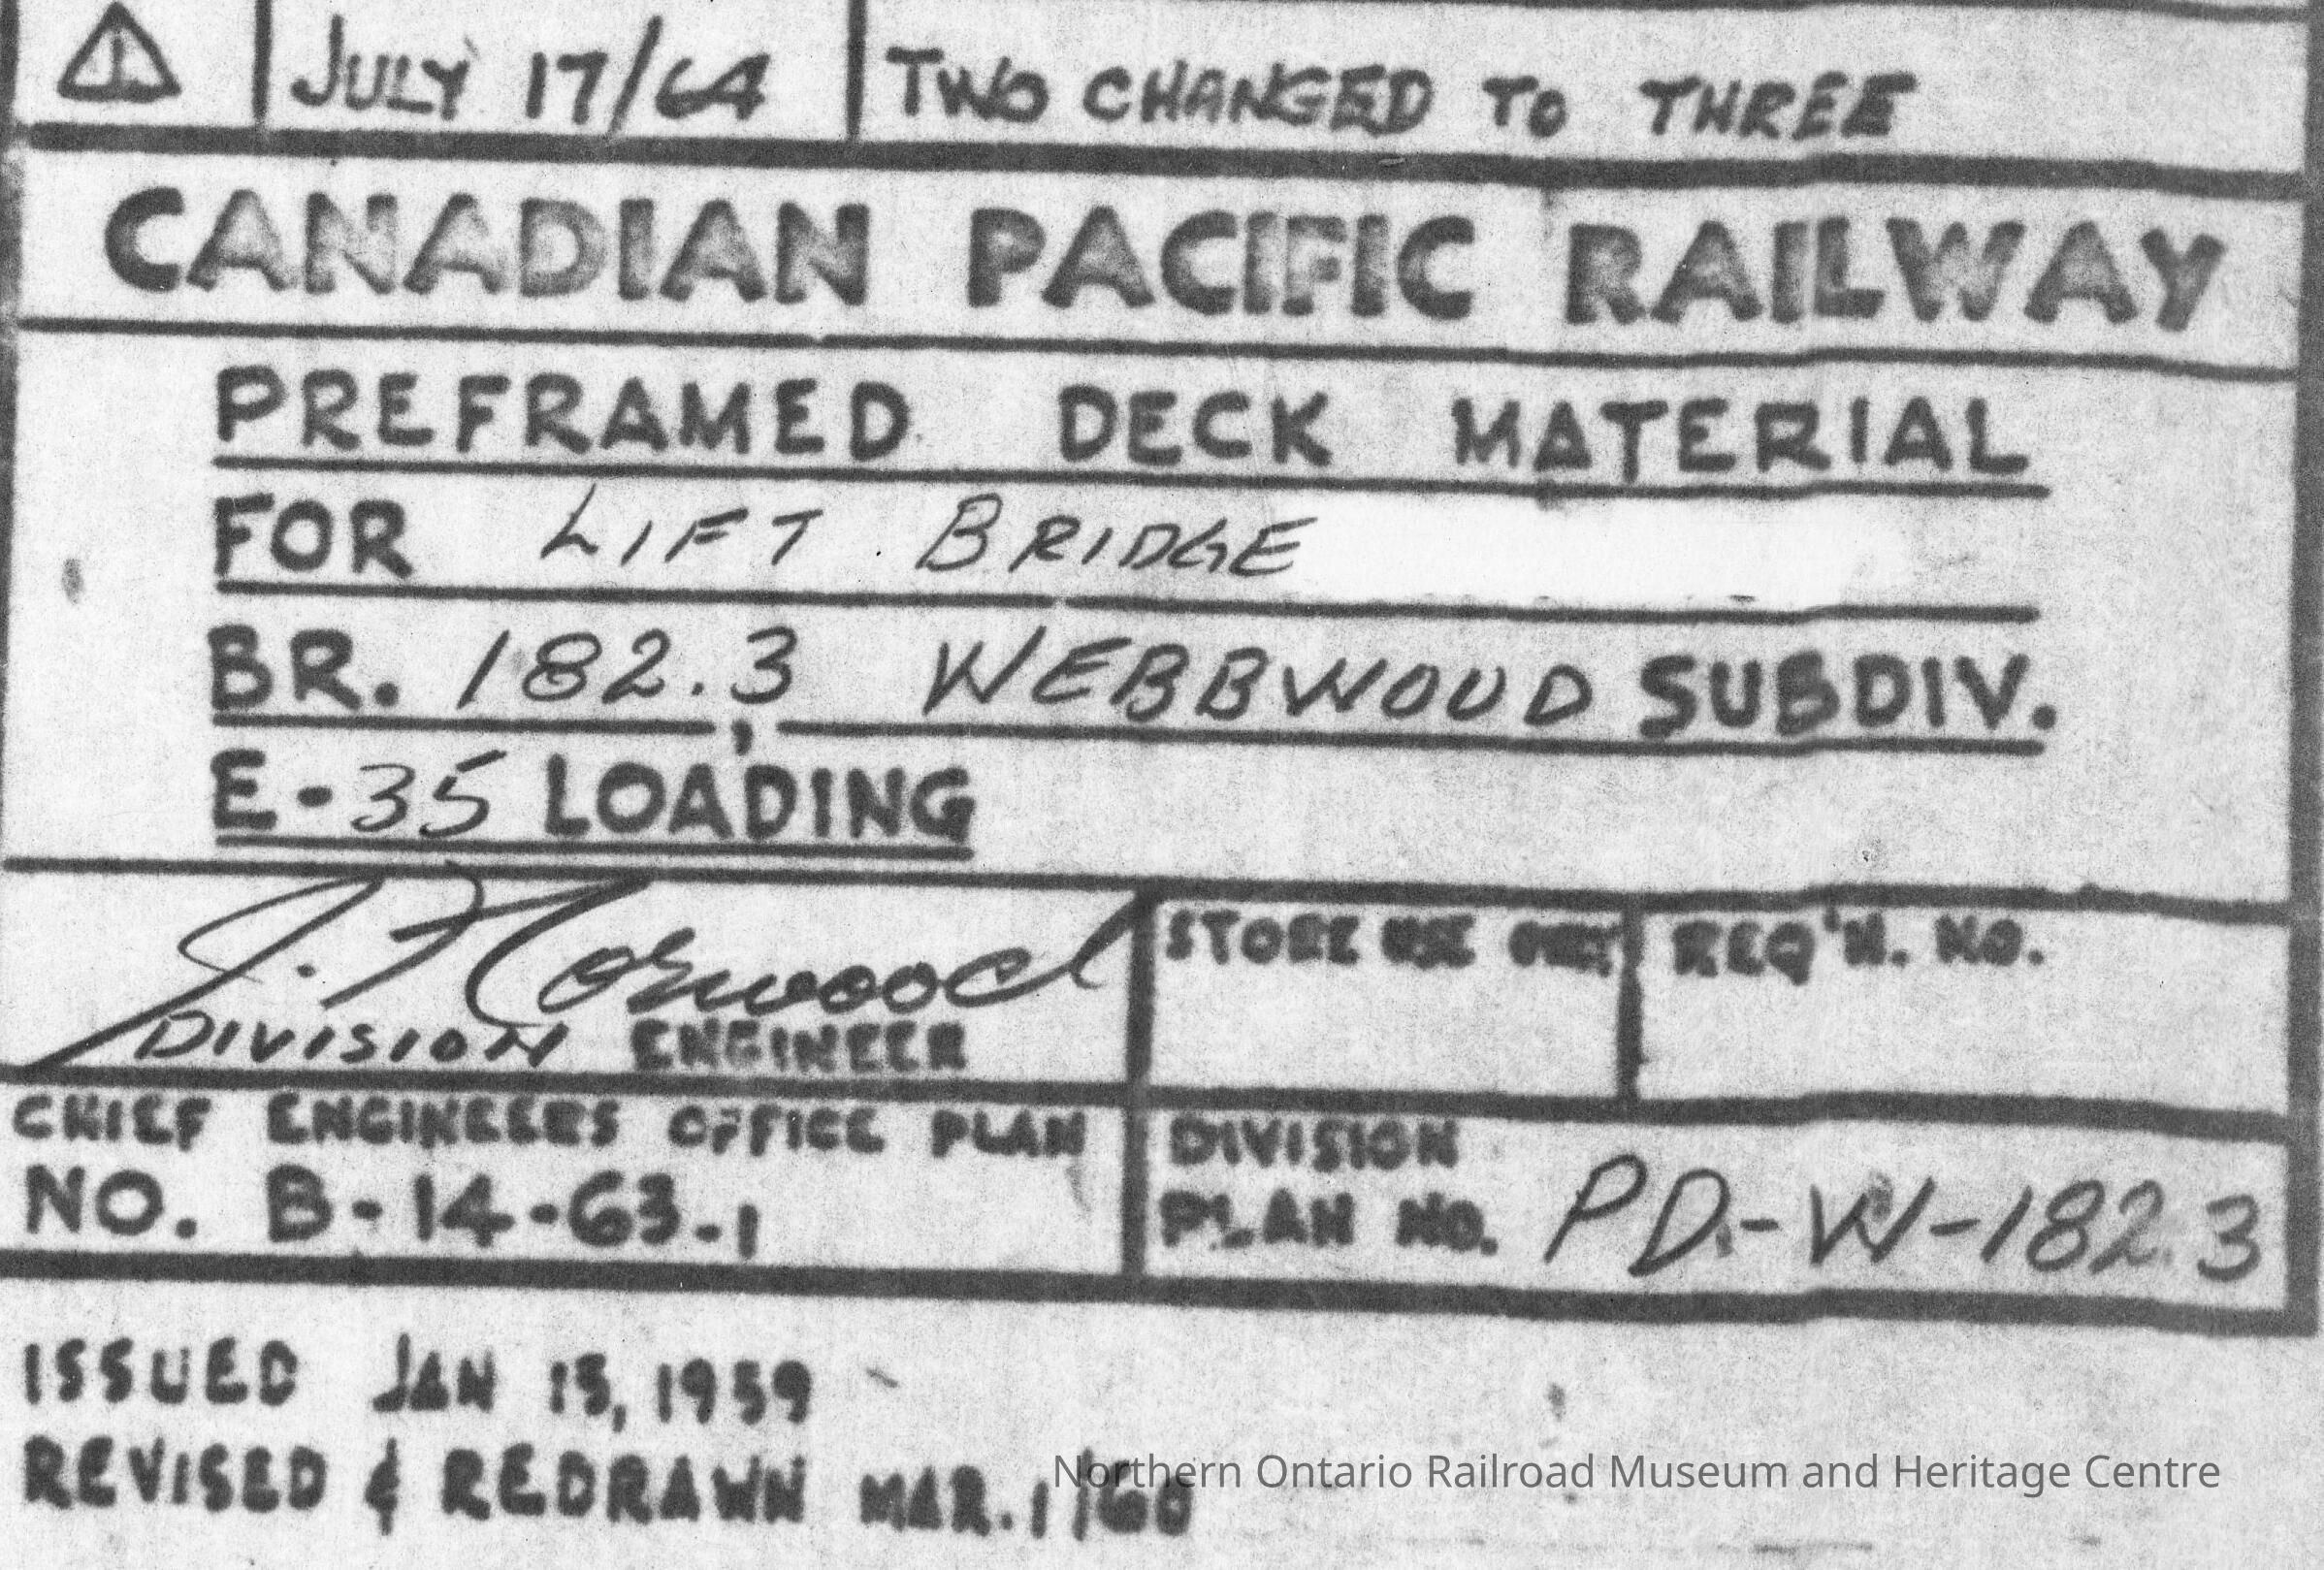 1 JULY 17/64 TWO CHANGED TO THREE
CANADIAN PACIFIC RAILWAY
PREFRAMED DECK MATERIAL
FOR LIFT BRIDGE
BR. 182.3 WEBBWOOD SUBDIV.
E-35 LOADING
J. Norwood
DIVISION ENGINEER
STORE USE ONLY
REQ'N. NO.
CHIEF ENGINEERS OFFICE PLAN
NO. B-14-63-1
DIVISION
PLAN NO. PD.-W-182.3
ISSUED JAN 15, 1959
REVISED & REDRAWN MAR. 1/60
Northern Ontario Railroad Museum and Heritage Centre